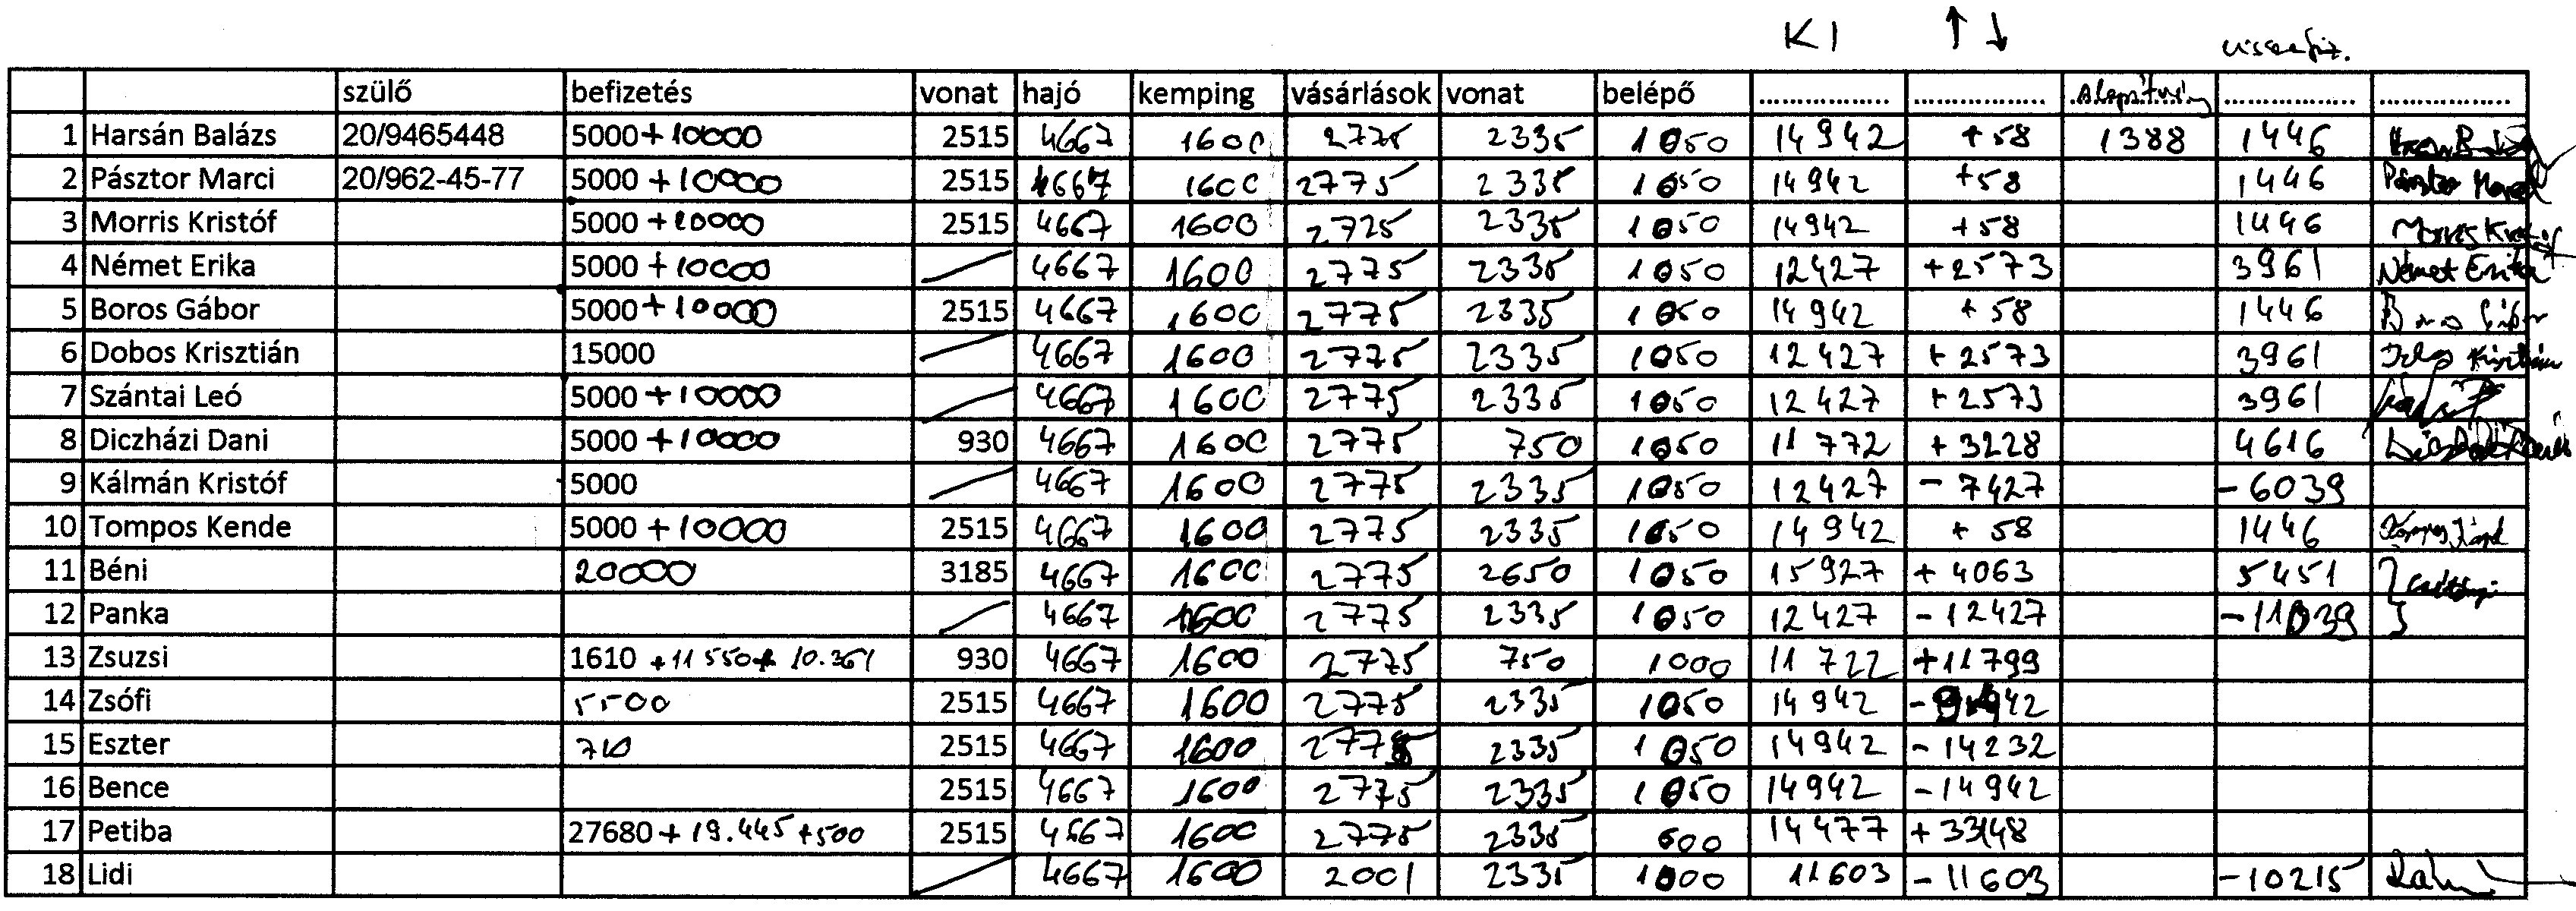 KI ↑↓ visszafiz.
szülő befizetés vonat hajó kemping vásárlások vonat belépő ................ ................ Alapítvány ................ ................
1 Harsán Balázs 20/9465448 5000+10000 2515 4667 1600 2775 2335 1050 14942 +58 1388 1446
2 Pásztor Marci 20/962-45-77 5000+10000 2515 4667 1600 2775 2335 1050 14942 +58 1446 Pásztor Marcell
3 Morris Kristóf 5000+10000 2515 4667 1600 2725 2335 1050 14942 +58 1446 Morris Kristóf
4 Német Erika 5000+10000 4667 1600 2775 2335 1050 12427 +2573 3961 Német Erika
5 Boros Gábor 5000+10000 2515 4667 1600 2775 2335 1050 14942 +58 1446 Boros Gábor
6 Dobos Krisztián 15000 4667 1600 2775 2335 1050 12427 +2573 3961 Dobos Krisztián
7 Szántai Leó 5000+10000 4667 1600 2775 2335 1050 12427 +2573 3961
8 Diczházi Dani 5000+10000 930 4667 1600 2775 750 1050 11772 +3228 4616
9 Kálmán Kristóf 5000 4667 1600 2775 2335 1050 12427 -7427 -6039
10 Tompos Kende 5000+10000 2515 4667 1600 2775 2335 1050 14942 +58 1446
11 Béni 20000 3185 4667 1600 2775 2650 1050 15927 +4063 5451
12 Panka 4667 1600 2775 2335 1050 12427 -12427 -11039
13 Zsuzsi 1610+11550+10.361 930 4667 1600 2775 750 1000 11722 +11799
14 Zsófi 5500 2515 4667 1600 2775 2335 1050 14942 -9442
15 Eszter 710 2515 4667 1600 2775 2335 1050 14942 -14232
16 Bence 2515 4667 1600 2775 2335 1050 14942 -14942
17 Petiba 27680+19.445+500 2515 4667 1600 2775 2335 600 14477 +33148
18 Lidi 4667 1600 2001 2335 1000 11603 -11603 -10215